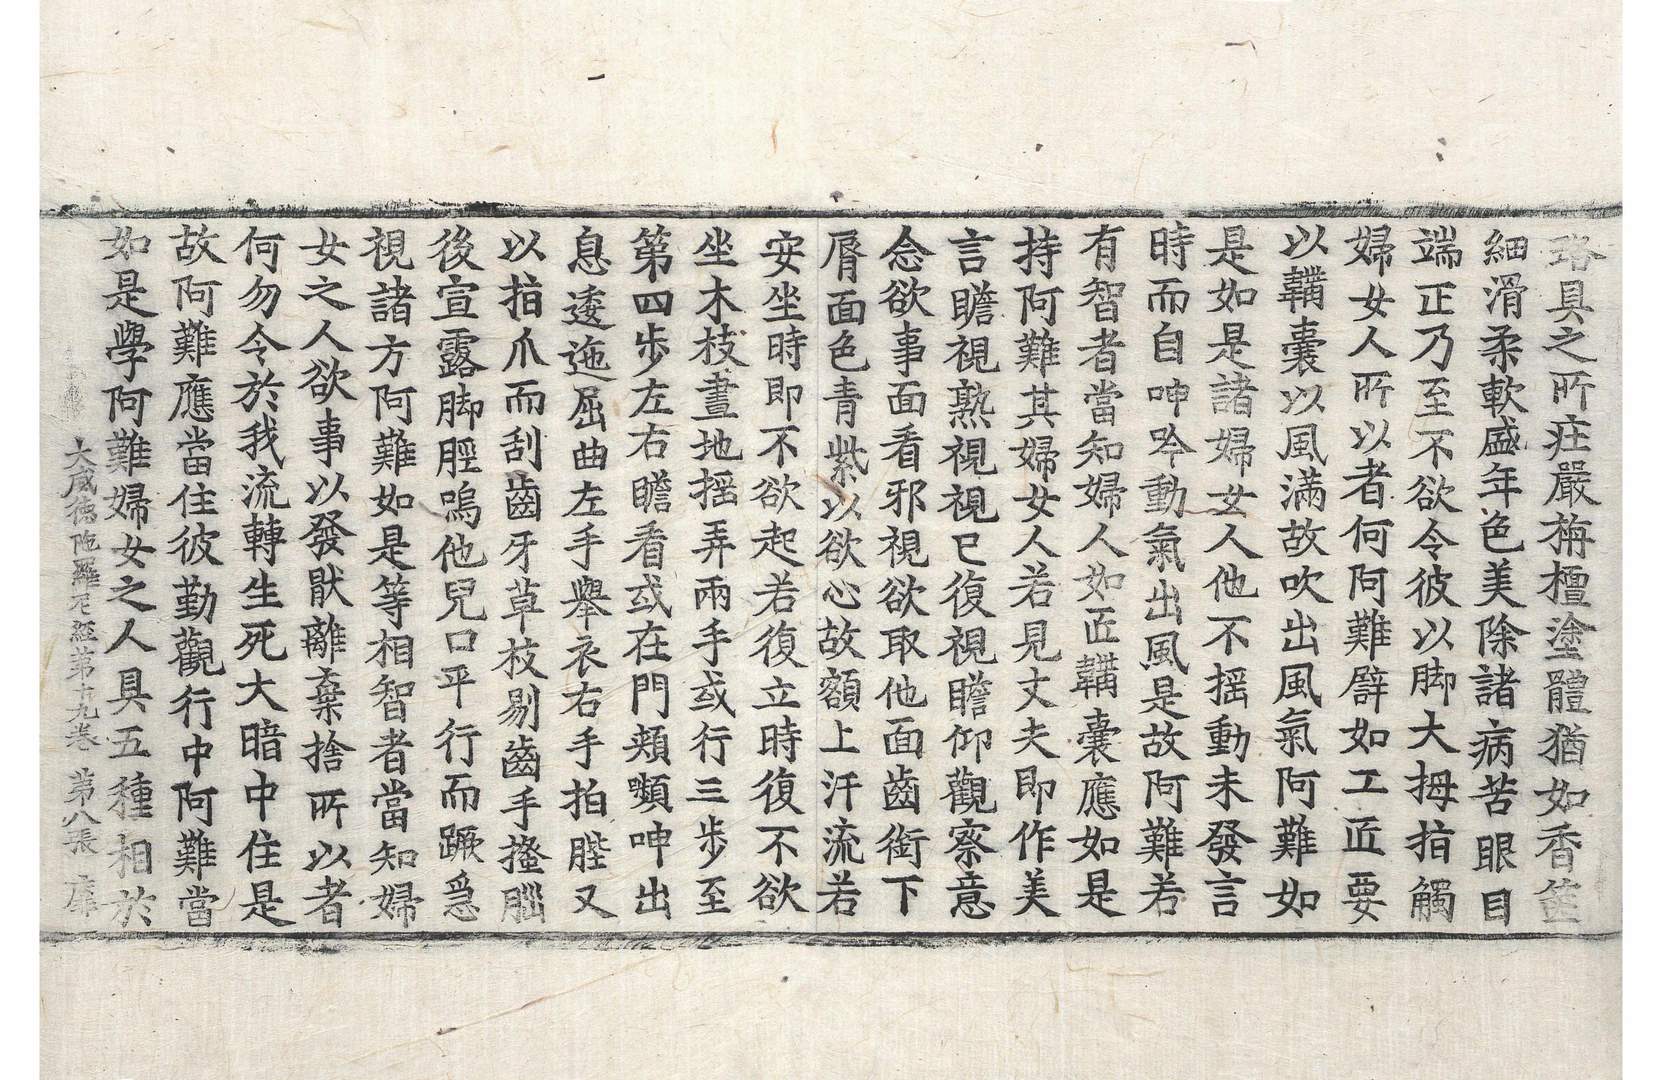 珞具之所莊嚴栴檀塗體猶如香篋
細滑柔軟盛年色美除諸病苦眼目
端正乃至不欲令彼以脚大拇指觸
婦女人所以者何阿難譬如工匠要
以韛囊以風滿故吹出風氣阿難如
是如是諸婦女人他不搖動未發言
時而自呻吟動氣出風是故阿難若
有智者當知婦人如匠韛囊應如是
持阿難其婦女人若見丈夫即作美
言瞻視熟視視已復視瞻仰觀察意
念欲事面看邪視欲取他面齒銜下
脣面色青紫以欲心故額上汗流若
安坐時即不欲起若復立時復不欲
坐木枝畫地搖弄兩手或行三步至
第四步左右瞻看或在門頰嚬呻出
息逶迤屈曲左手舉衣右手拍髀又
以指爪而刮齒牙草枝剔齒手搔腦
後宣露脚脛嗚他兒口平行而蹶急
視諸方阿難如是等相智者當知婦
女之人欲事以發猒離棄捨所以者
何勿令於我流轉生死大暗中住是
故阿難應當住彼勤觀行中阿難當
如是學阿難婦女之人具五種相於
大威德陁羅尼經第十九卷 第八張